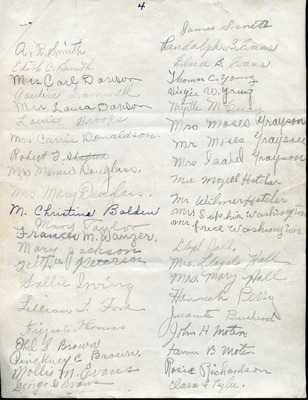 4
A. R. Smith
Edith C. Smith
Mrs Carl Davison
Pauline Trammell
Mrs Laura Davison
Louise Brooks
Mrs Carrie Donaldson.
Robert T.
Mrs Mamie Douglass.
Mrs Mary Douglass.
M. Christine Bolden
Mary Taylor
Francis M. Wanzer.
Mary Jackson
Peterson
Sallie Irving
Lillian L. Ford
Thomas
Ethel S. Brown
Pinckney C. Brown.
Mollie M. Evans
George Evans
James Smith
Randolph B. Evans
Elsie B. Evans
Thomas C. Young
Virgie W. Young
Myrtle M. Berry
Mrs Moses Grayson
Mr Moses Grayson
Mrs Isaiah Grayson
Mrs Mozell Hatcher
Mr Wilmer Hatcher
Mrs Sophia Washington
Mr Price Washington
Lloyd Hall,
Mrs. Lloyd Hall
Mrs. Mary Hall
Hannah Berry
Juanita
John H Moten
Fannie B Moten
Rosie Richardson
Clara E. Pyles.